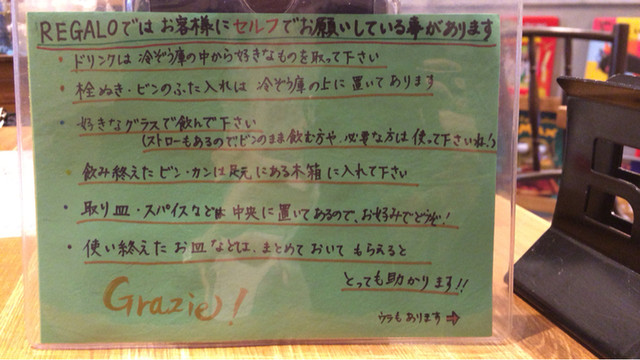 REGALOではお客様にセルフでお願いしている事があります
・ドリンクは冷ぞう庫の中から好きなものを取って下さい
・栓ぬき・ビンのふた入れは冷ぞう庫の上に置いてあります
・好きなグラスで飲んで下さい
(ストローもあるので、ビンのまま飲む方や、必要な方は使って下さいね!)
・飲み終えたビン・カンは足元にある木箱に入れて下さい
・取り皿・スパイスなどは中央に置いてあるので、お好みでどうぞ!
・使い終えたお皿などは、まとめておいてもらえると
とっても助かります!!
Grazie!
ウラもあります→